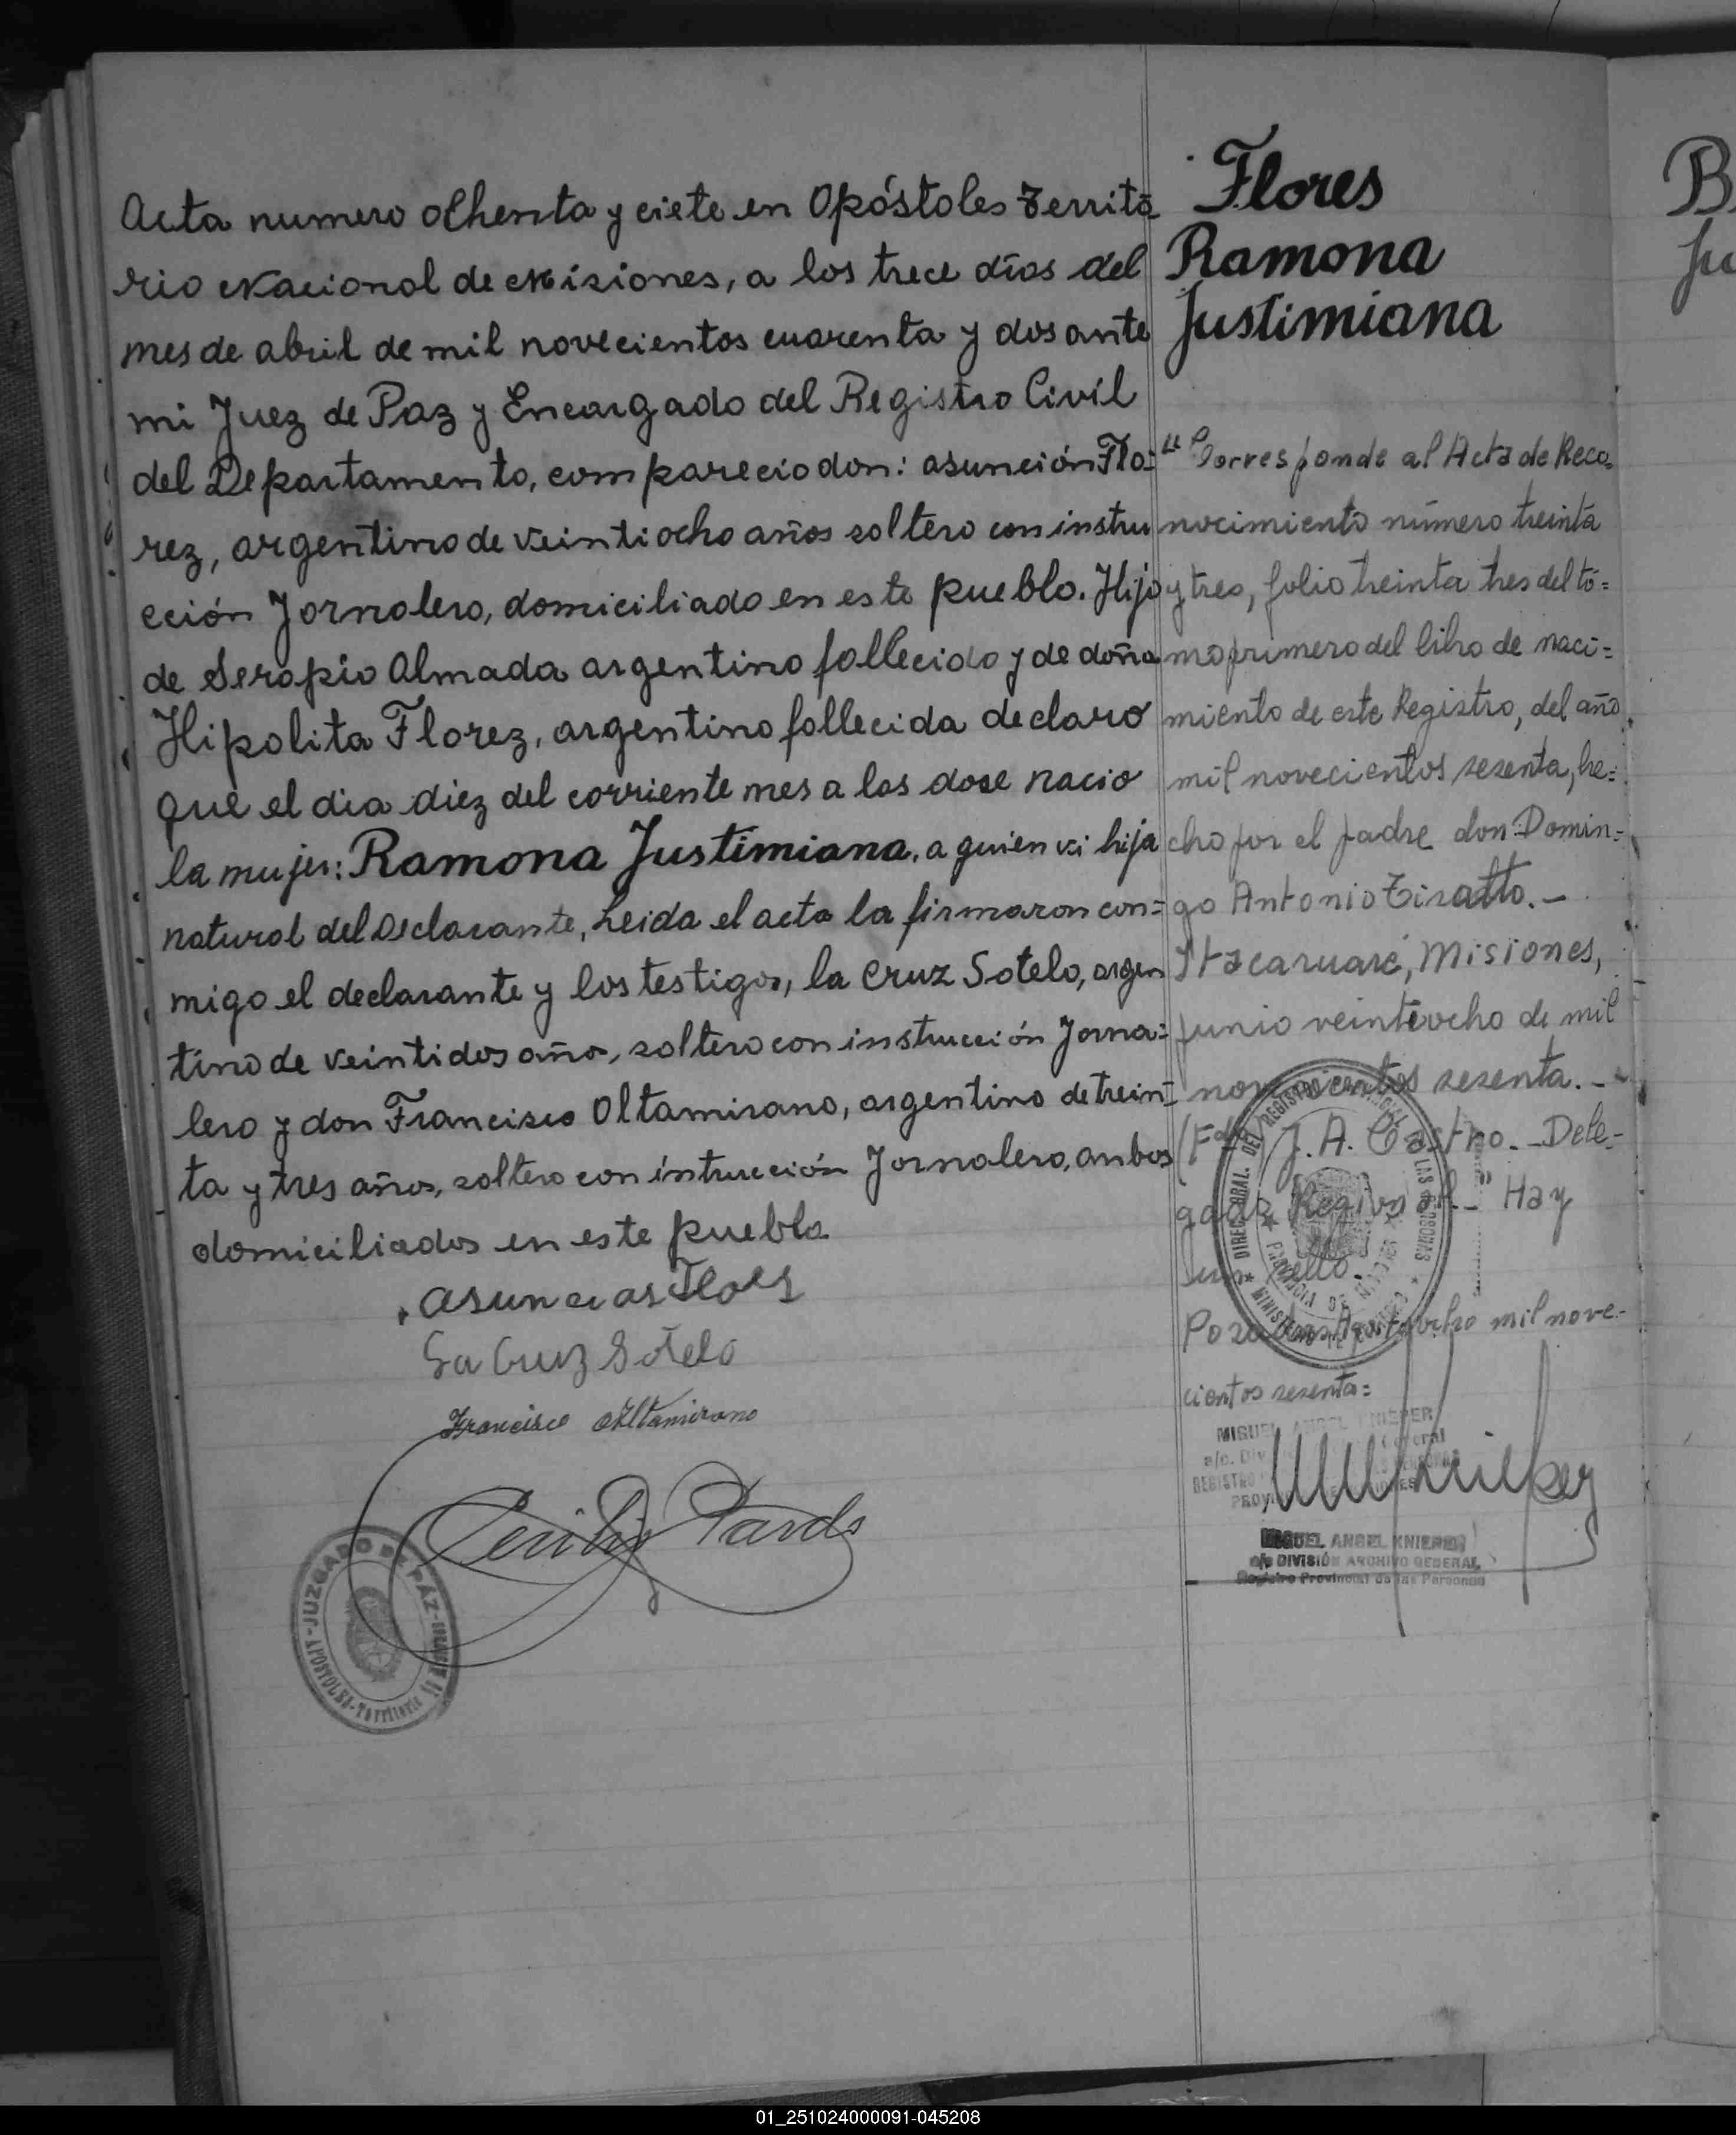 Acta numero othenta y ciete en Opóstoles Territo
rio Nacional de Misiones, a los trece días del
mes de abril de mil novecientos cuarenta y dos ante
mi Juez de Paz y Encargado del Registro Civíl
del Departamento, comparecio don: asunción Flo=
rez, argentino de veinti ocho años soltero con instru
cción Jornalero, domiciliado en este pueblo. Hijo
de Serapio Almada argentino fallecido y de doña
Hipolita Florez, argentino fallecida declaro
que el dia diez del corriente mes a las dose nacio
la mujer: Ramona Justimiana, a quien vi hija
natural del Declarante, Leida el acta la firmaron con=
migo el declarante y los testigos, la Cruz Sotelo, argen
tino de veintidos año, soltero con instrucción Jorna=
lero y don Francisco Altamirano, argentino de trein=
ta y tres años, soltero con íntrucción Jornalero, anbos
domiciliados en este pueblo
La Cruz Sotelo
Francisco Altamirano
Pardo
JUZGADO DE PÁZ
APOSTOLES-Territorio
Flores
Ramona
Justimiana
"Corresponde al Acta de Reco=
nocimiento número treinta
y tres, folio treinta tres del to=
mo primero del libro de naci=
miento de este Registro, del año
mil novecientos sesenta, he=
cho por el padre don Domin=
go Antonio Tiratto.-
Itacaruaré, Misiones,
Junio veinteocho de mil
novecientos sesenta.-
(Fdo J. A. Castro.- Dele-
gado Hay
un sello.
Posadas, Agosto ocho mil nove-
cientos sesenta=
MIGUEL ANGEL KNIEPER
REGISTRO
MIGUEL ANGEL KNIEPER
a/c DIVISIÓN ARCHIVO GENERAL
Registro Provincial de las Personas
B
Ju
01_251024000091-045208